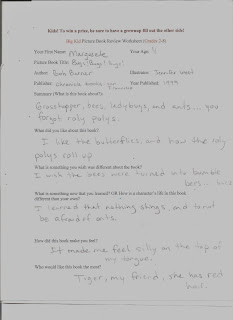 Kids! To win a prize, be sure to have a grownup fill out the other side!
Big Kid Picture Book Review Worksheet (Grades 2-6)
Your First Name: Marguerite Your Age: 4
Picture Book Title: Bugs! Bugs! Bugs!
Author: Bob Barner Illustrator:
Publisher: Chronicle Books Year Published: 1999
Summary (What is this book about?):
Grasshopper, bees, ladybugs, and ants... you
forgot roly polys.
What did you like about this book?
I like the butterflies, and how the roly
polys roll up
What is something you wish was different about the book?
I wish the bees were turned into bumble
bees...
What is something new that you learned? OR How is a character's life in this book
different than your own?
I learned that nothing stings, and to not
be afraid of ants.
How did this book make you feel?
It made me feel silly on the top of
my tongue.
Who would like this book the most?
Tiger, my friend, she has red
hair.